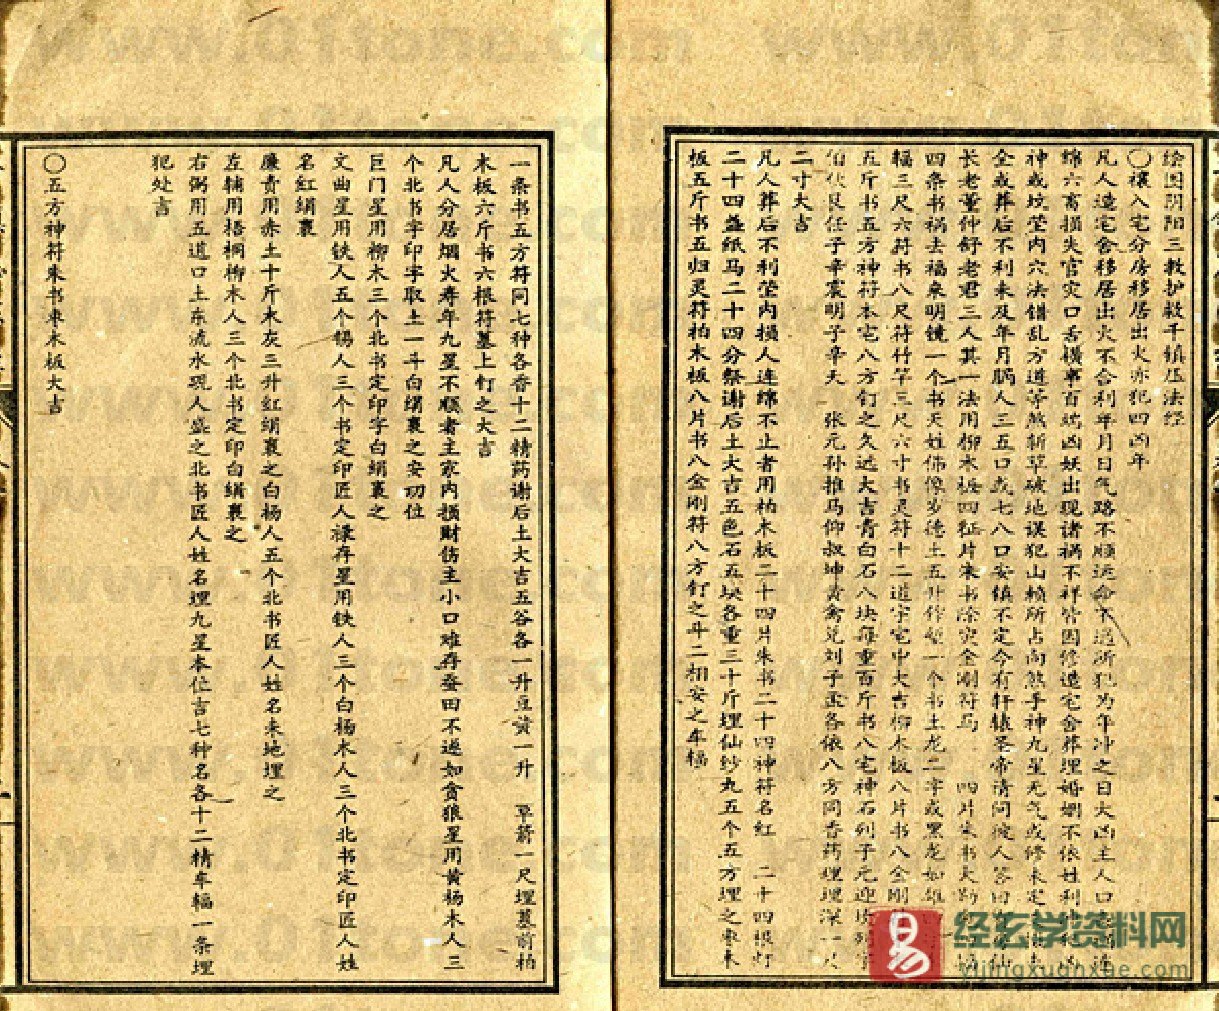 绘图阴阳三教护救千镇压法经
〇禳入宅分房移居出火亦犯四凶年
凡人造宅舍移居出火不合利年月日气路不顺运命不通所犯为年冲之日大凶主人口
绵六畜损失官灾口舌横事百端凶妖出现诸祸不祥皆因修造宅舍葬埋婚姻不依姓利
神或坟茔内穴法错乱方道等煞斩草破地误犯山赖所占向煞手神九星无气或修未定
全或葬后不利来及年月 人三五口或七八口安镇不定今有轩辕圣帝请问 人答曰
长老董仲舒老君三人其一法用柳木板四征片朱书除灾金刚符马 四片朱书天
四条书祸去福来明镜一个书天姓佛像岁德土五升作 一个书土龙二字或黑龙如
辐三尺六符书八尺符竹竿三尺六寸书灵符十二道字宅中大吉柳木板八片书八金刚
五斤书五方神符本宅八方钉之久远大吉青白石八块每重百斤书八宅神石列子元迎
伯伏艮任子辛震明子辛天 张元孙推马仰叔坤 禽兑刘子 各依八方同香药埋埋深一尺
二寸大吉
凡人葬后不利茔内损人连绵不止者用柏木板二十四片朱书二十四神符名红 二十四根灯
二十四盏纸马二十四分祭谢后土大吉五色石五块各重三十斤埋仙纱丸五个五方埋之枣木
板五斤书五归灵符柏木板八片书八金刚符八方钉之斗二相安之车辐
一条书五方符同七种各香十二精药谢后土大吉五谷各一升豆黄一升 草箭一尺埋墓前柏
木板六斤书六根符墓上钉之大吉
凡人分居烟火寿年九星不顺者主家内损财伤主小口难存蚕田不遂如贪狼星用黄杨木人三
个北书字印字取土一斗白绢裹之安功位
巨门星用柳木三个北书定印字白绢裹之
文曲星用铁人五个锡人三个书定印匠人禄存星用铁人三个白杨木人三个北书定印匠人姓
名红绢裹
廉贞用赤土十斤木灰三升红绢裹之白杨人五个北书匠人姓名未地埋之
左辅用梧桐柳木人三个北书定印白绢裹之
右弼用五道口土东流水现人盛之北书匠人姓名埋九星本位吉七种名各十二精车辐一条埋
犯处吉
〇五方神符朱书枣木板大吉
经玄学资料网
yijingxuanxue.com
www.01tone.com